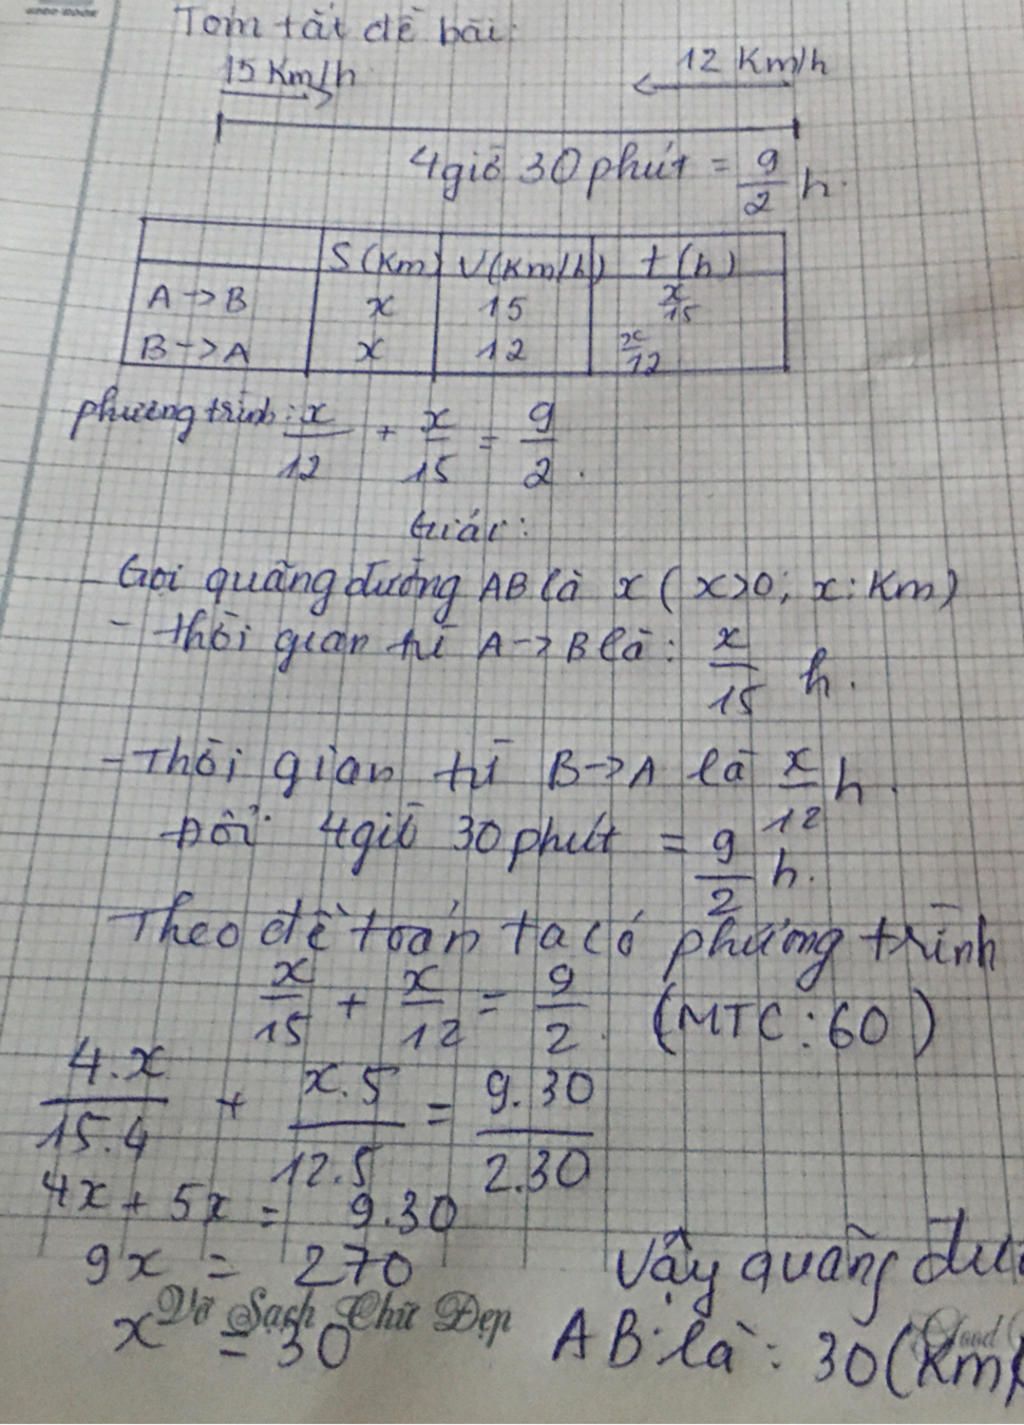 Tóm tắt đề bài:
15 Km/h
12 Km/h
4 giờ 30 phút = 9/2 h.
S (Km) V (Km/h) t (h)
A -> B x 15 x/15
B -> A x 12 x/12
phương trình: x/12 + x/15 = 9/2.
Giải:
- Gọi quãng đường AB là x ( x>0; x: Km)
- Thời gian từ A -> B là: x/15 h.
- Thời gian từ B -> A là x/12 h.
Đổi: 4 giờ 30 phút = 9/2 h.
Theo đề toán ta có phương trình
x/15 + x/12 = 9/2. (MTC: 60)
4.x/15.4 + x.5/12.5 = 9.30/2.30
4x + 5x = 9.30
9x = 270
Vậy quãng đườ
x = 30
AB là: 30 (Km)
Vở Sạch Chữ Đẹp